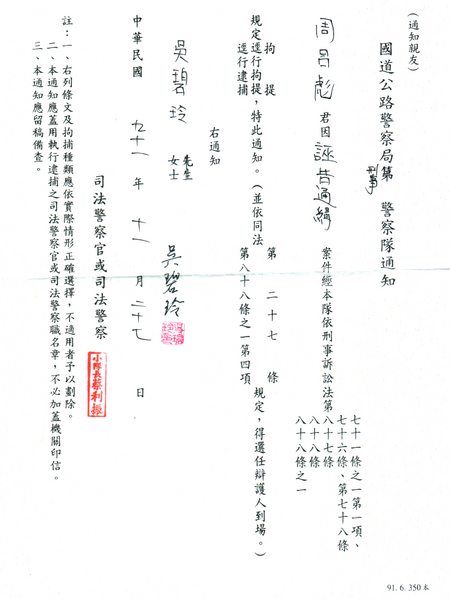 （通知親友）
國道公路警察局第刑事警察隊通知
周呂彪君因誣告通緝案件經本隊依刑事訴訟法第
七十一條之一第一項、
七十六條、第七十八條
八十七條
八十八條
八十八條之一
規定逕行拘提，特此通知。（並依同法第二十七條規定，得選任辯護人到場。）
拘提
逕行逮捕
第八十八條之一第四項
右通知
吳碧玲先生
女士
吳碧玲
司法警察官或司法警察
小隊長蔡利振
中華民國九十一年十一月二十七日
註：一、右列條文及拘捕種類應依實際情形正確選擇，不適用者予以劃除。
二、本通知應蓋用執行逮捕之司法警察官或司法警察職名章，不必加蓋機關印信。
三、本通知應留稿備查。
91. 6. 350本